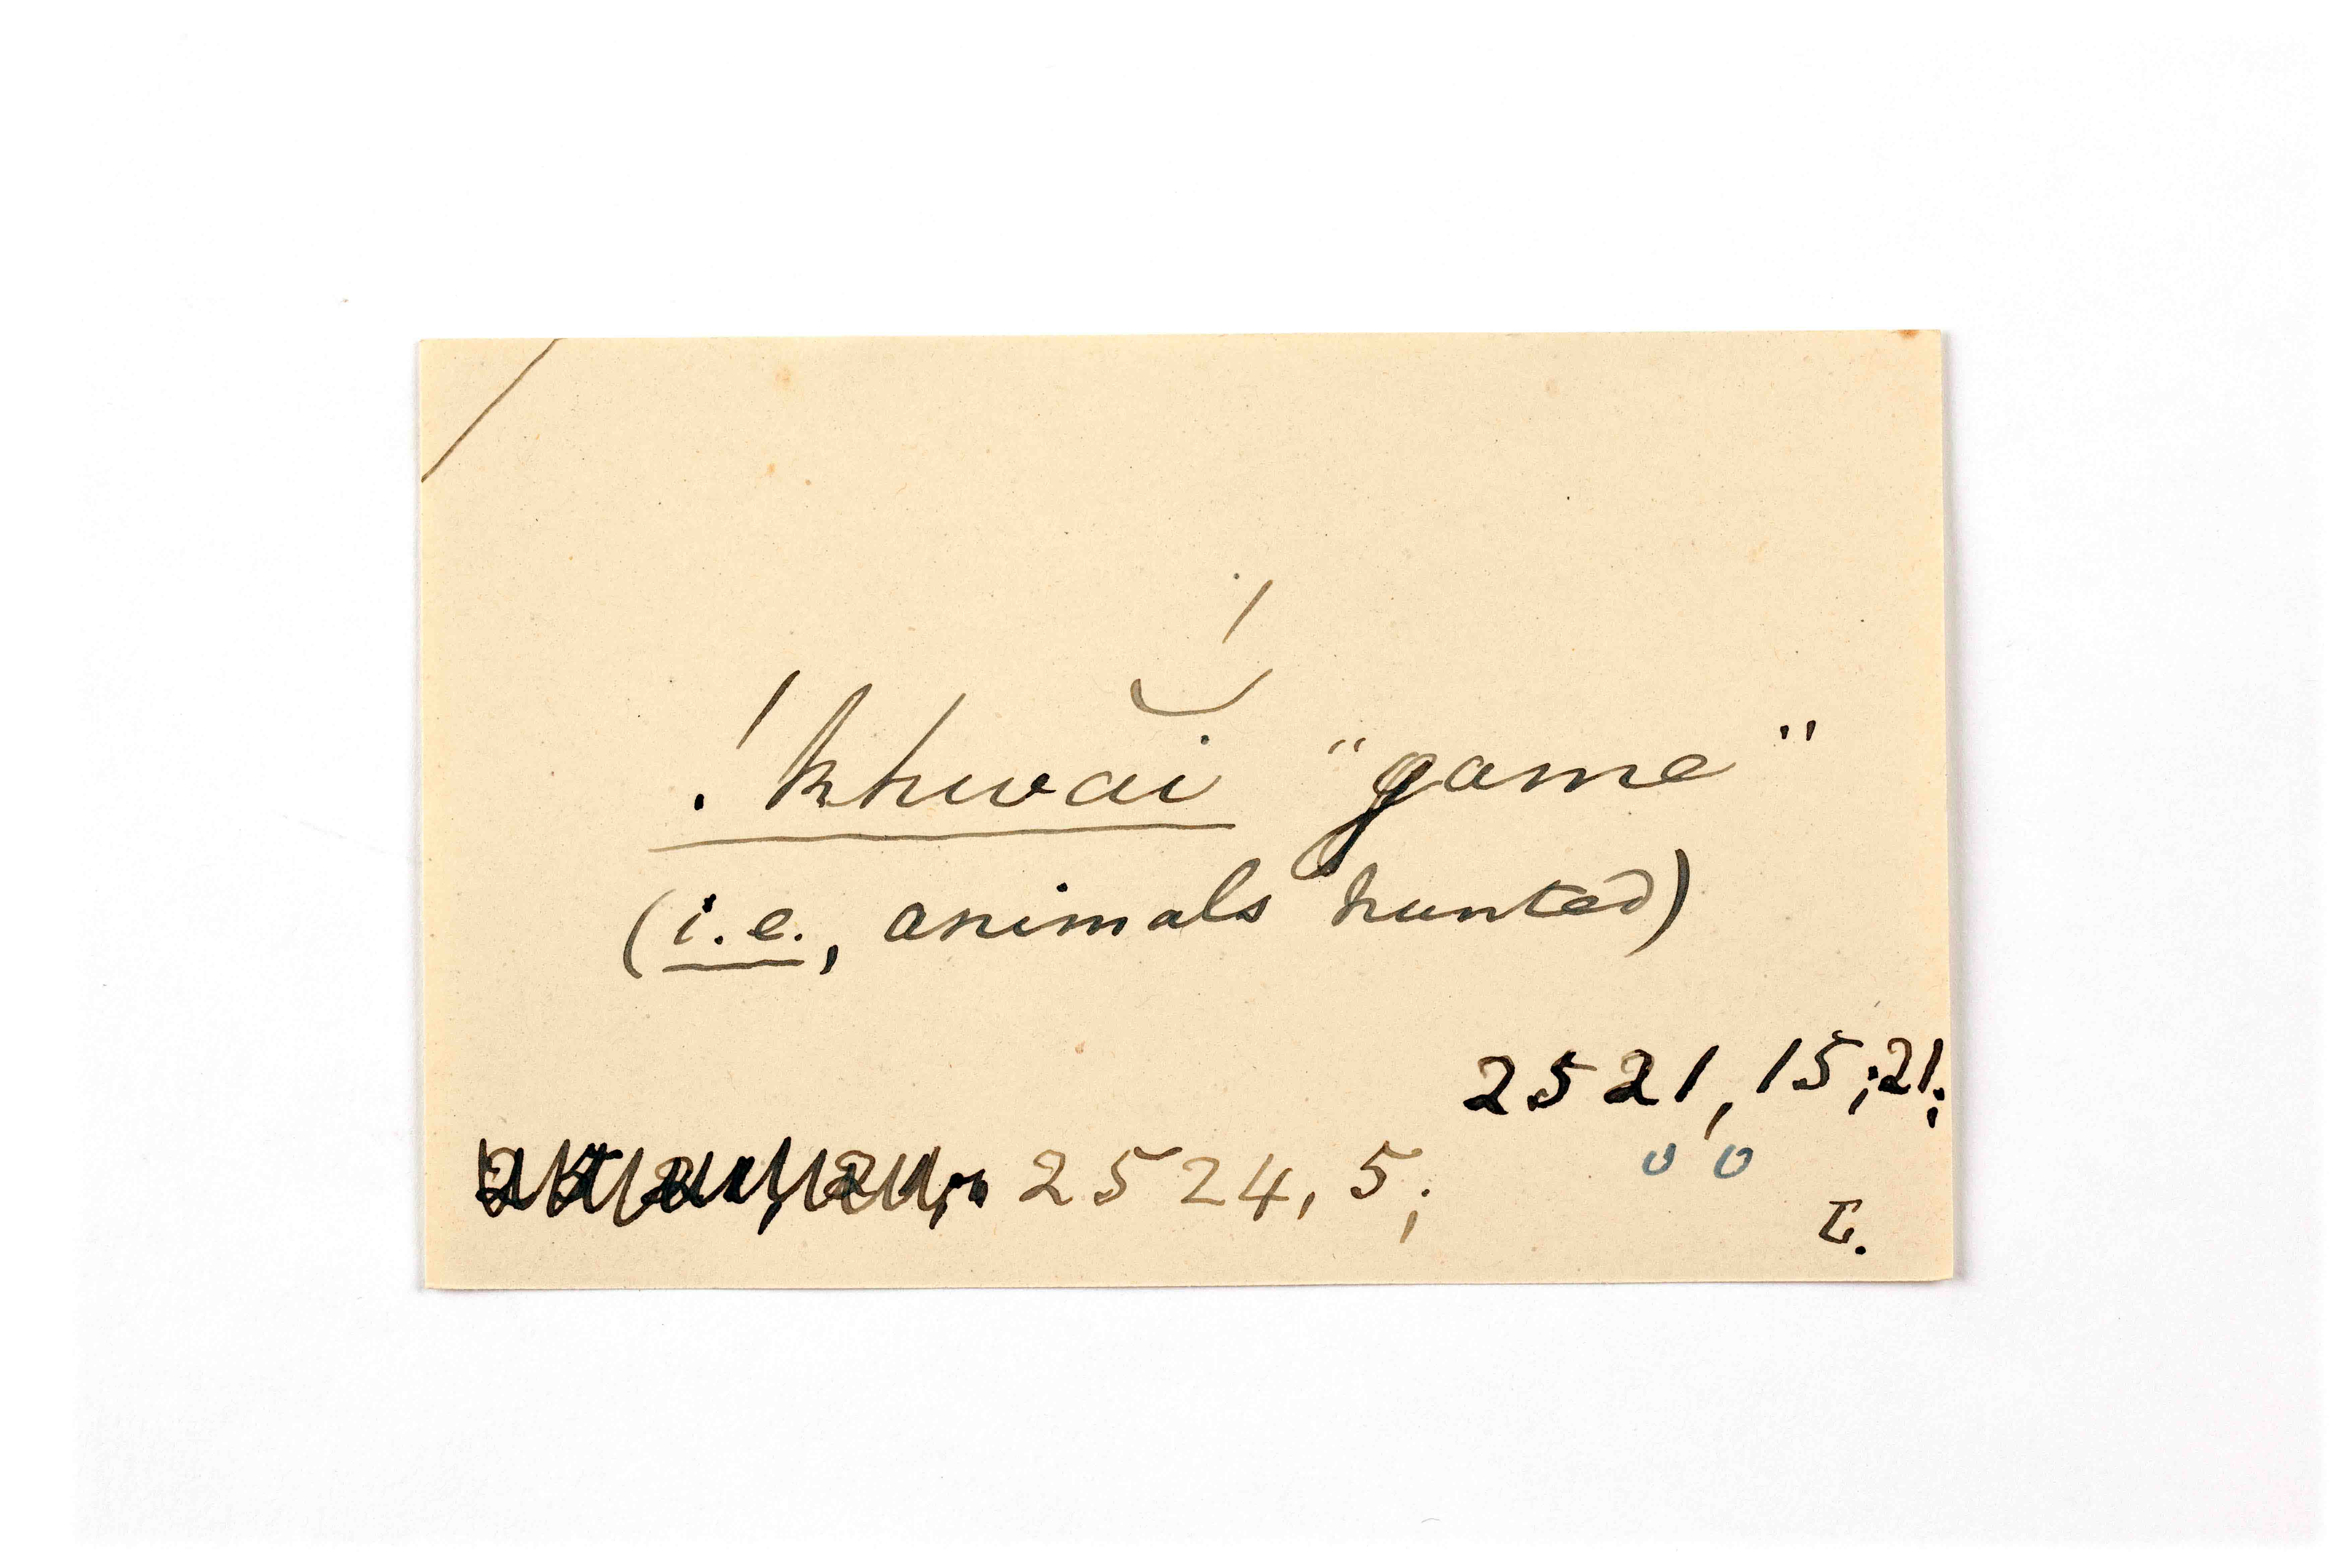 !khwaĭ "game"
(i.e., animals hunted)
2521, 15; 21;
2524, 5;